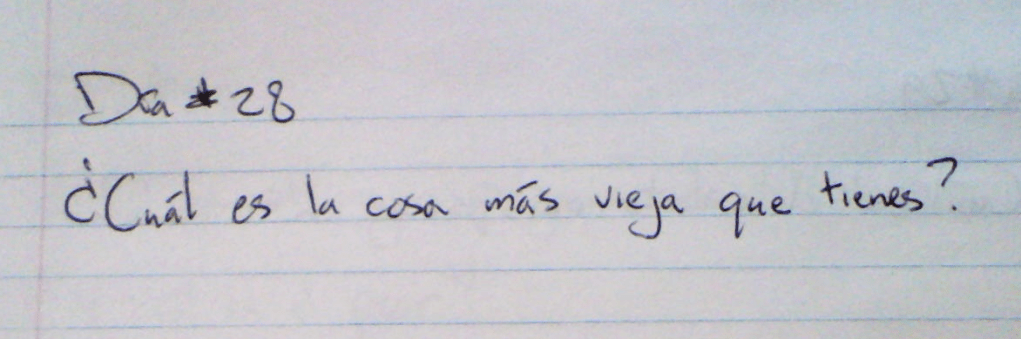 Día # 28
¿Cuál es la cosa más vieja que tienes?